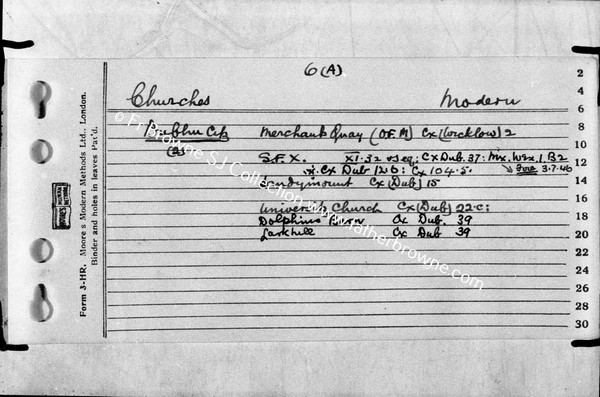 6 (A)
Churches Modern
Dublin City Merchants Quay (OFM) Cx (Wicklow) 2
(2)
S.F.X. XI. 32 seq; Cx Dub. 37: Mx. Wx. 1. B2
Cx Dub 126: Cx 104.5. Fire 3.7.46
Sandymount Cx (Dub) 15
University Church Cx (Dub) 22-c:
Dolphins Barn Cx Dub. 39
Larkhill Cx Dub 39
2
4
6
8
10
12
14
16
18
20
22
24
26
28
30
Form 3-HR. Moore's Modern Methods Ltd., London.
Binder and holes in leaves Pat'd.
© Fr Browne SJ Collection www.fatherbrowne.com